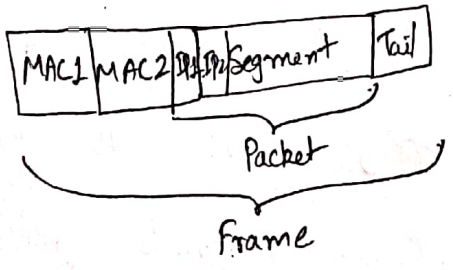 MAC1 MAC2 IP1 IP2 Segment Tail
Packet
Frame